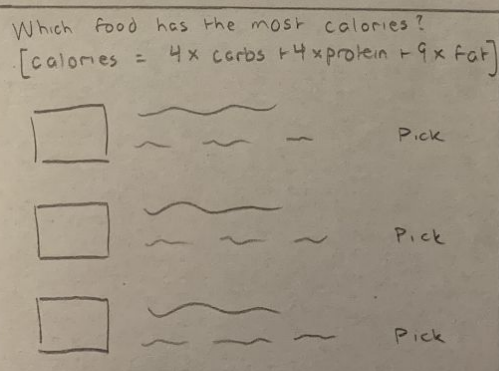 Which food has the most calories?
[calories = 4x carbs + 4x protein + 9x fat]
Pick
Pick
Pick